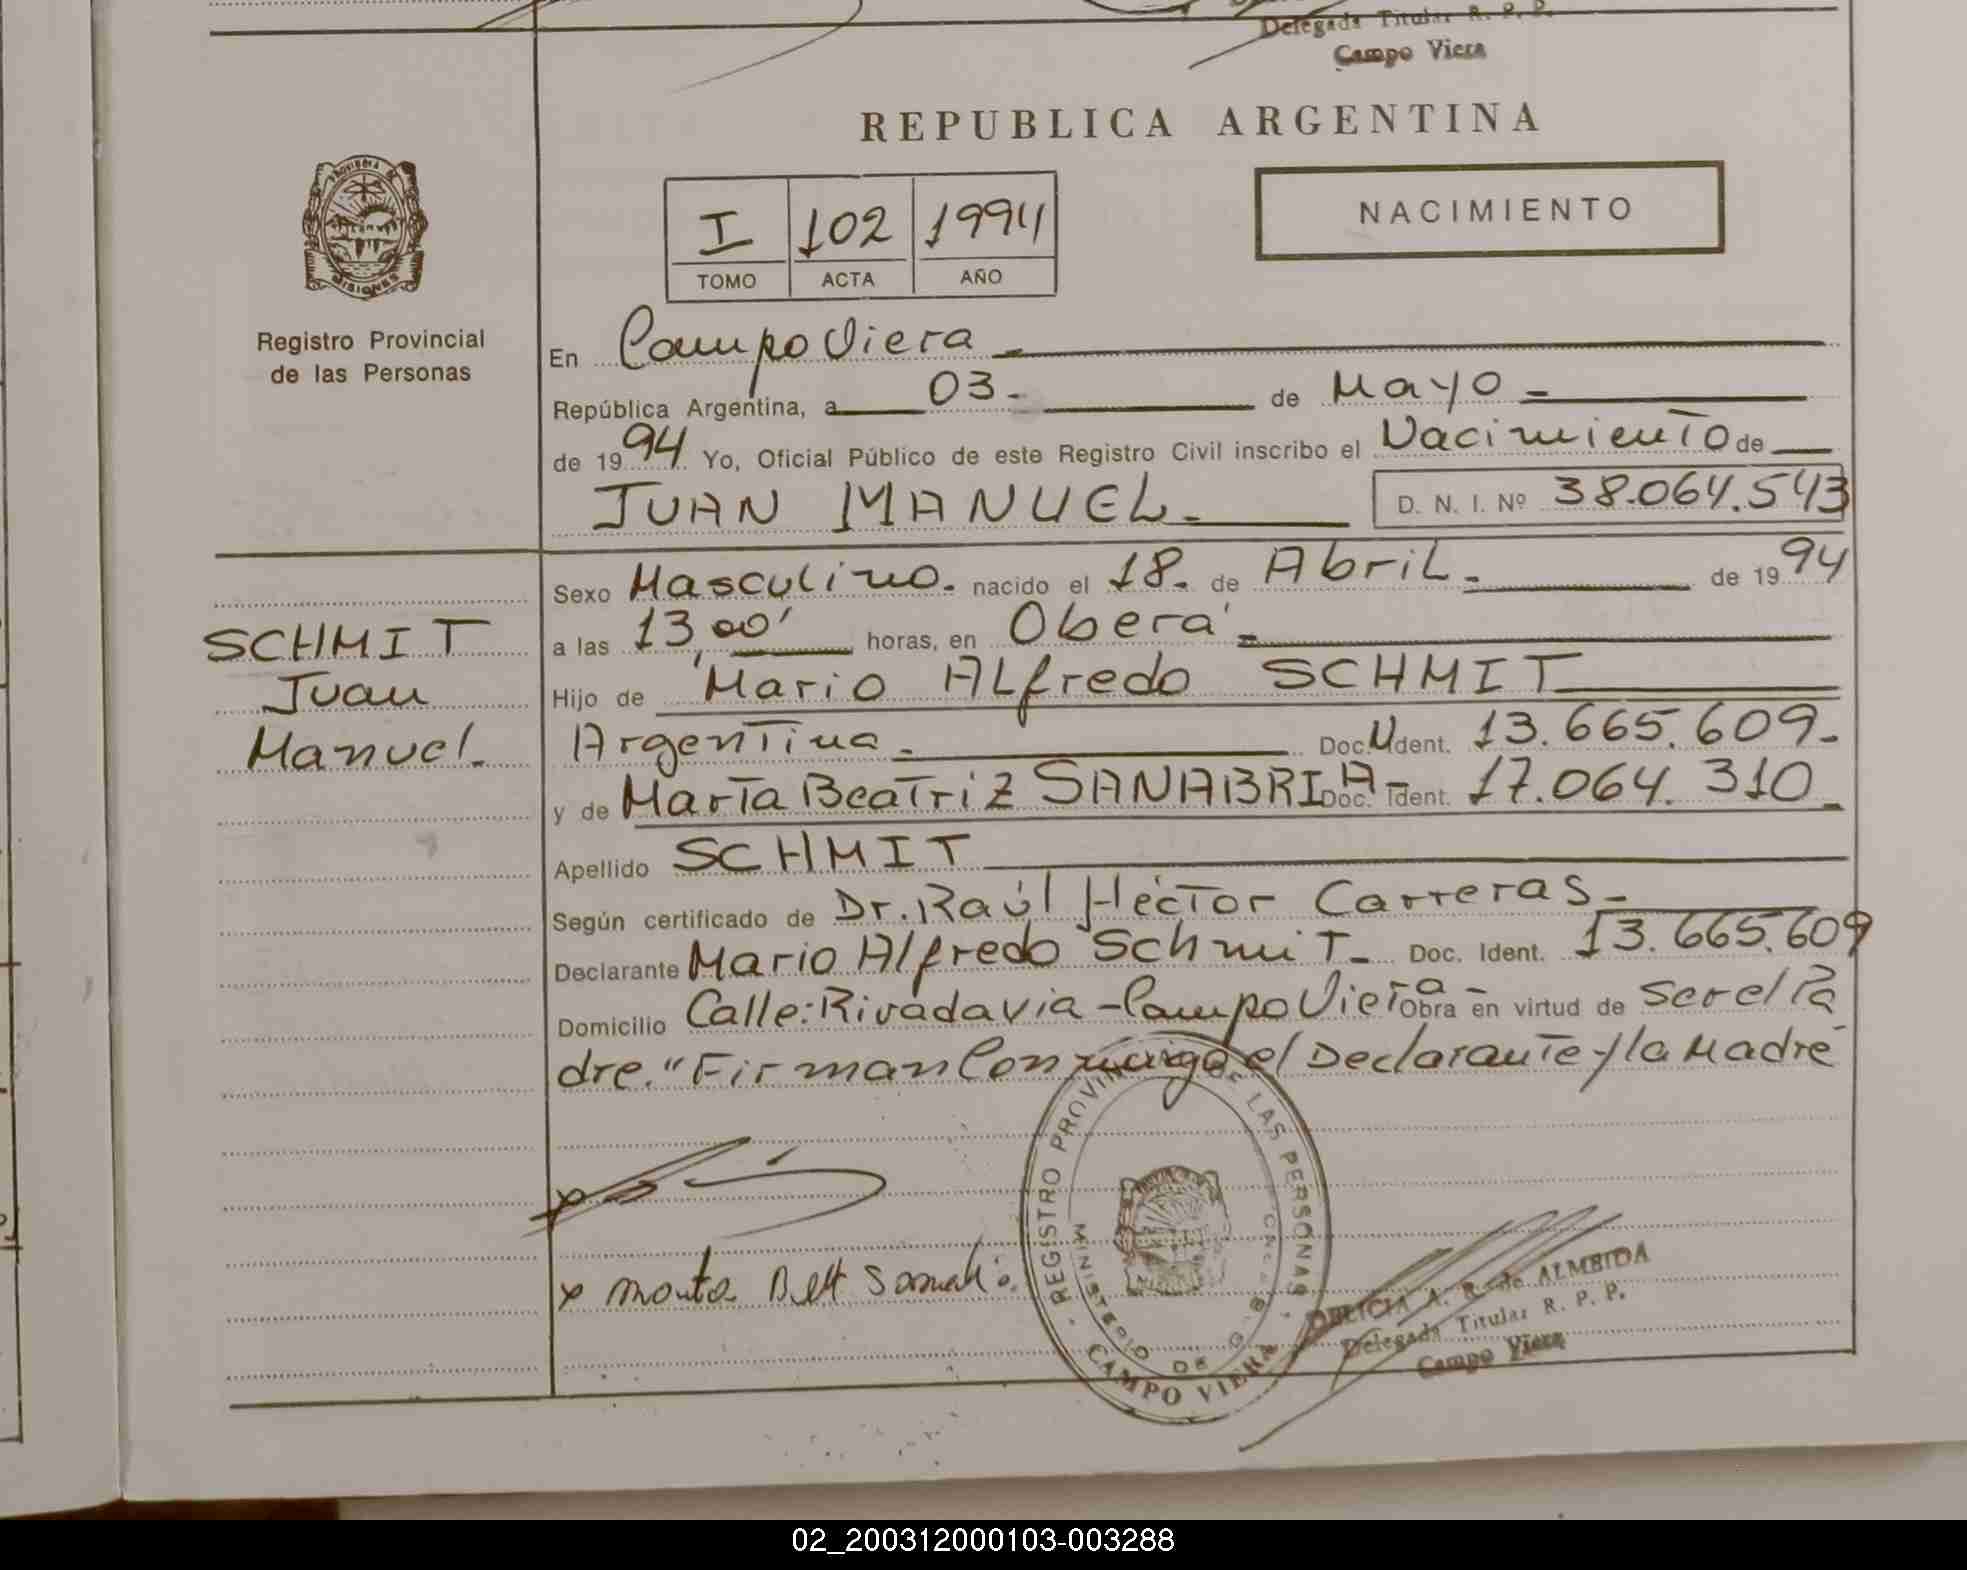 Delegada Titular R. P. P.
Campo Viera
REPUBLICA ARGENTINA
PROVINCIA DE
MISIONES
Registro Provincial
de las Personas
I 102 1994
TOMO ACTA AÑO
NACIMIENTO
En Campo Viera -
República Argentina, a 03.- de Mayo -
de 1994 Yo, Oficial Público de este Registro Civil inscribo el Nacimiento de
JUAN MANUEL.- D. N. I. Nº 38.064.543
SCHMIT
Juan
Manuel.
Sexo Masculino. nacido el 18. de Abril.- de 1994
a las 13,00' horas, en Oberá -
Hijo de Mario Alfredo SCHMIT
Argentina.- Doc. U Ident. 13.665.609.-
y de Marta Beatriz SANABRIA- Doc. Ident. 17.064.310.
Apellido SCHMIT
Según certificado de Dr. Raúl Héctor Carreras.-
Declarante Mario Alfredo Schmit.- Doc. Ident. 13.665.609
Domicilio Calle: Rivadavia - Campo Viera - Obra en virtud de ser el Pa
dre. "Firman Conmigo el Declarante y la Madre
x
x Marta Beat Sanab
REGISTRO PROVINCIAL DE LAS PERSONAS
MINISTERIO DE G
CAMPO VIERA
DELICIA A. R. de ALMEIDA
Delegada Titular R. P. P.
Campo Viera
02_200312000103-003288